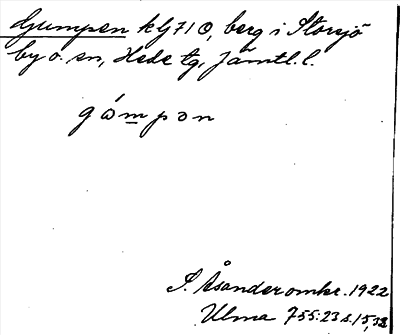 Gumpen k Lj 71 O, berg i Storsjö
by o. sn, Hede tg, Jämtl. l.
gómpən
S. Åsander omkr. 1922
Ulma 755:23 s. 15, 32